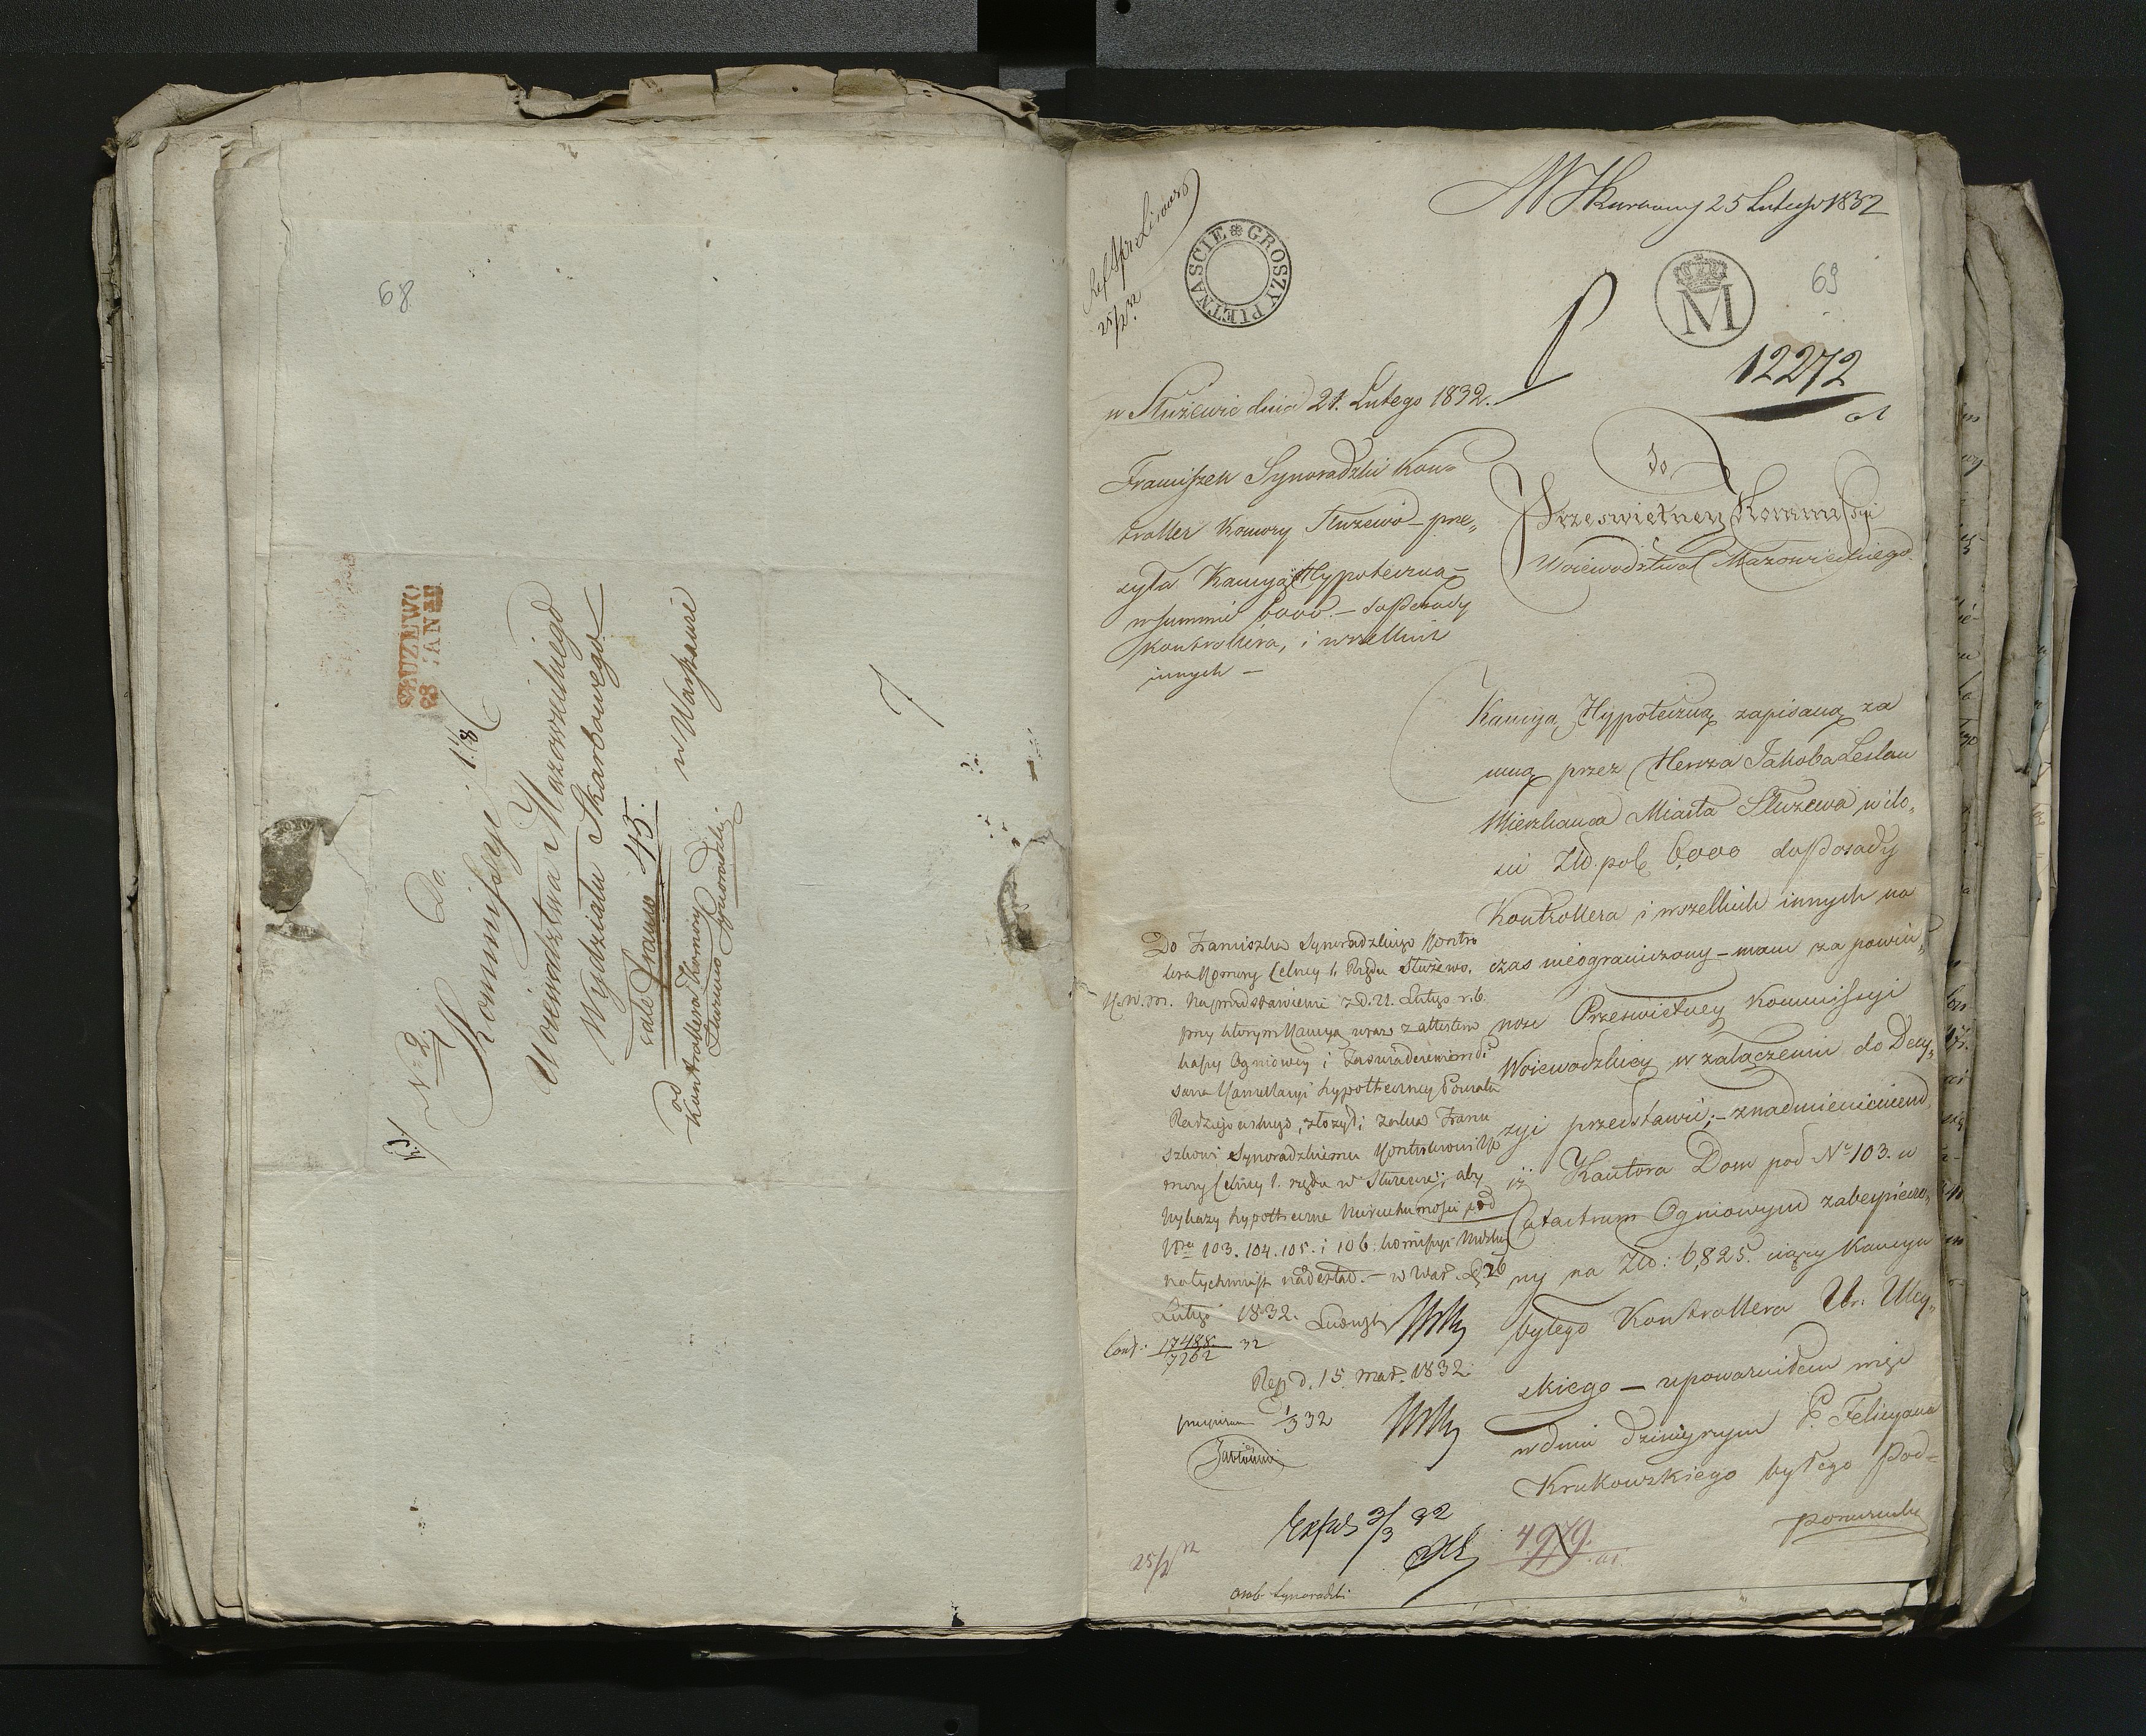 68
SŁUZEWO
23 JAN
N. 2.
Do.
Kommissyi
Woiewództwa Mazowieckiego
Wydziału Skarbowego
w Warszawie
od
Kontrollera Komory
Służewo Synoradzki
W Skarbowy 25 Lutego 1832
GROSZY PIETNASCIE
M
69
12272
w Służewie dnia 21. Lutego 1832.
Franciszek Synoradzki Kon=
troller Komory Służewo – prze„
syła Kaucyą Hypoteczną –
w summie 6000. – do Posady
Kontrollera, i wszelkich
innych –
Do
Prześwietney Kommissyi
Woiewodztwa Mazowieckiego.
Kaucyą Hypoteczną zapisaną za
mną przez Hersza Jakoba Leslau
Mieszkańca Miasta Służewa w ilo„
ści Złł. pol. 6,000 do Posady
Kontrollera i wszelkich innych na
czas nieograniczony – mam za powin„
ność Prześwietney Kommissyi
Woiewodzkiey w załączeniu do Decy„
zyi przedstawić; – z nadmienieniem
iż Kautora Dom pod No 103. w
Catastrum Ogniowym zabezpieczo„
ny na Złł: 6,825. ciąży Kaucya
byłego Kontrollera Ur: Uley„
skiego – upoważniłem więc
w dniu dzisieyszym P. Felicyana
Krukowskiego byłego Pod=
porucznika
Do Franciszka Synoradzkiego Kontro
lera Komory Celney 1. Rzędu Służewo.
K. W. M. Na przedstawienie z d. 21. Lutego r. b.
przy którym Kaucyą wraz z attestem
kassy Ogniowey i Zaświadczeniem
Kancellaryi hypoteczney Powiatu
Radziejowskiego, złożył; zaleca Franci
szkowi Synoradzkiemu Kontrolerowi Ko
mory Celney 1. rzędu w Służewie; aby
Wykazy hypoteczne Nieruchomości pod
Nra 103. 104. 105. i 106. Kommissyi Wdzkiey
natychmiast nadesłał. – w War. d. 26
Lutego 1832.
17488
7262 32
Rep d. 15. mar. 1832.
3/3 32
4979.
25/2 32
Synoradzki